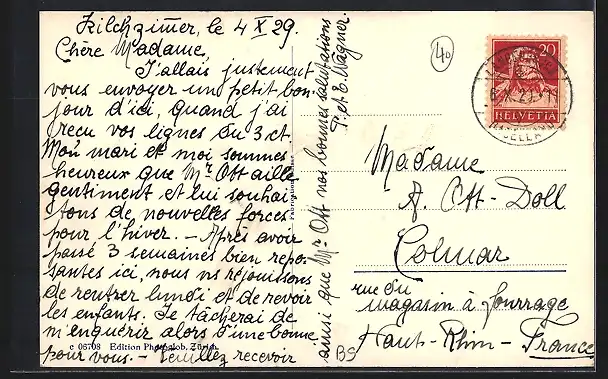 Kilchzimmer, le 4 X 29.
Chère Madame,
J'allais justement
vous envoyer un petit bon-
jour d'ici, quand j'ai
reçu vos lignes du 3 ct.
Mon mari et moi sommes
heureux que Mr Ott aille
gentiment et lui souhai-
tons de nouvelles forces
pour l'hiver. – Après avoir
passé 3 semaines bien repo-
santes ici, nous ns réjouissons
de rentrer lundi et de revoir
les enfants. Je tâcherai de
m'enquérir alors d'une bonne
pour vous. – Veuillez recevoir
ainsi que Mr Ott nos bonnes salutations
P. et E. Wagner.
c 06708 Edition Photoglob. Zürich.
40
20
HELVETIA
Madame
A. Ott-Doll
Colmar
rue du
magasin à fourrage
Haut-Rhin-France
BS